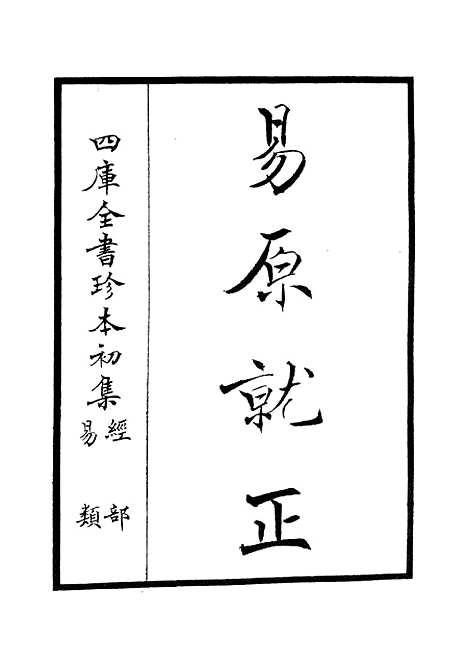 易原就正
四庫全書珍本初集
經部
易類